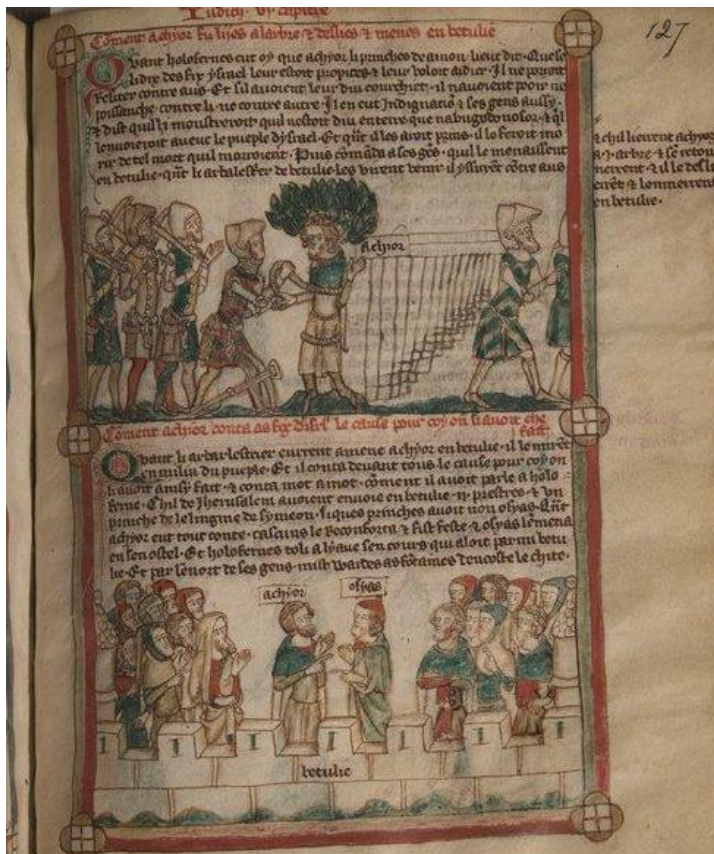 Judith · vj capitre
127
Coment achyor fu lijes a larbre & deslies & menes en betulie
Quant holofernes eut oy que achyor li princhez de amon lieut dit · Que se
li dix des fix ysrael leur estoit propices & leur voloit aidier · Il ne poroit
reliter contre aus · Et sil avoient leur diu courchiet · il navoient pooir ne
poissanche contre li ne contre autre · Il en eut Indignatiō & ses gens aussy ·
& dist quil li moustreroit quil nestoit diu enterre que nabugodonosor · & ql
lenvoieroit avuec le pueple dysrael · Et qūt il les aroit prins · il le feroit mo
rir de tel mort quil morroient · Puis comāda a ses gēs · quil le menaissent
en betulie · qūt li arbalestier de betulie les virent venir il yssirēt cōtre aus
& chil lierent achyor
a · j · arbre & se retou
nerrent · & il le desli
erēt & lenmerrent
en betulie ·
achyor
Coment achyor conta as fix disrl' le cause pour coy on li avoit che
fait
Quant li arbarlestrier eurrent amene achyor en betulie · il le mirēt
en miliu du pueple · Et il conta devant tous le cause pour coy on
li avoit ainsy fait · & conta mot a mot · cōment il avoit parle a holo
ferne · Chil de Jherusalem avoient envoie en betulie · ij · prestres & un
prinche de le lingnie de symeon · liques prinches avoit non osyas · Qūt
achyor eut tout conte · cascuns le Reconforta & fist feste & osyas lēmena
en sen ostel · Et holofernes toli a lyaue sen cours qui aloit par mi betu
lie · Et par de ses gens · mist wardes as fōtaines dencoste le chite ·
achyor
osyas
betulie